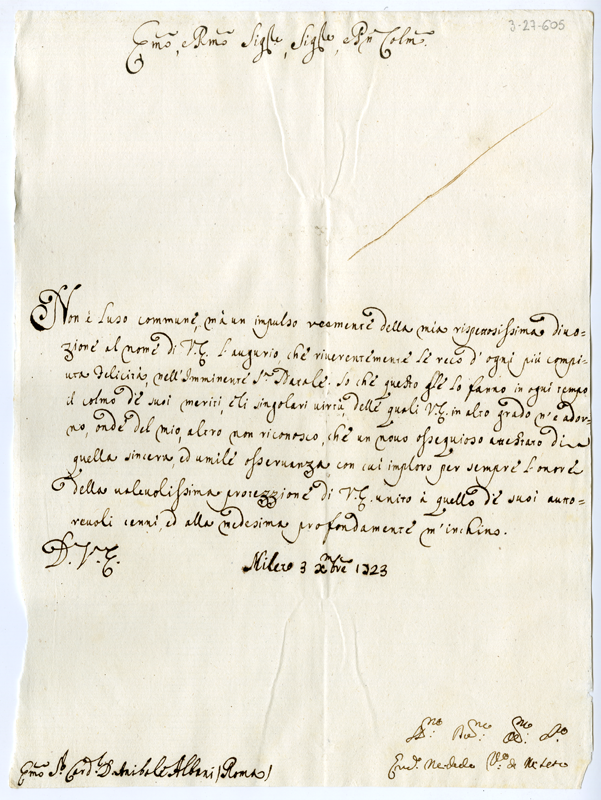 3-27-605
Emo, e Rmo Sigre, Sigre, e Pn Colmo.
Non è l'uso commune, mà un impulso veemente della mia rispettosissima divo=
zione al nome di V.E. l'augurio, che riverentemente le reco d'ogni più compi=
uta felicità, nell'Imminente Sto Natale. So che questo glie lo fanno in ogni tempo
il colmo de suoi meriti, e li singolari virtù delle quali V.E. in alto grado n'è ador=
no, onde del mio, altro non riconosco, che un novo ossequioso attestato di
quella sincera, ed umile osservanza, con cui imploro per sempre l'onore
della valevolissima protezzione di V.E. unito à quello de suoi auto=
revoli cenni, ed alla medesima profondamente m'inchino.
D. V. E.
Mileto 3 Xmbre 1723
Emo Sr Cardl D Anibale Albani (Roma)
Vo di Mileto